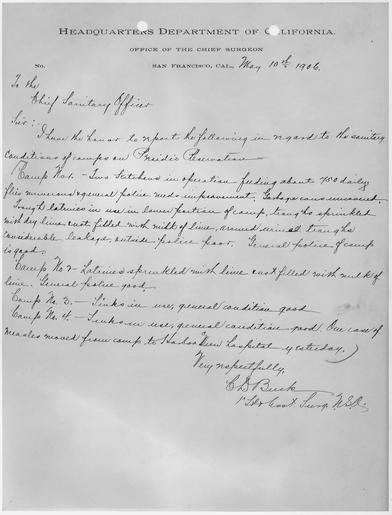 Headquarters Department of California.
OFFICE OF THE CHIEF SURGEON
No. SAN FRANCISCO, CAL., May 10th 1906.
To the
Chief Sanitary Officer
Sir:-
I have the honor to report the following in regard to the sanitary
conditions of camps on Presidio Reservation
Camp No 1. - Two Kitchens in operation feeding about 750 daily
flies numerous & general police needs improvement. Garbage cans uncovered.
Trough latrines in use in lower portion of camp, troughs sprinkled
with dry lime & not filled with milk of lime, around urinal troughs
considerable leakage, outside police poor. General police of camp
is good.
Camp No 2 - Latrines sprinkled with lime & not filled with milk of
lime. General police good
Camp No. 3. - Sinks in use, general condition good
Camp No. 4. - Sinks in use, general condition good. One case of
measles moved from camp to Harbor View Hospital yesterday.)
Very respectfully,
C D Buck
1st Lt & Asst. Surg.